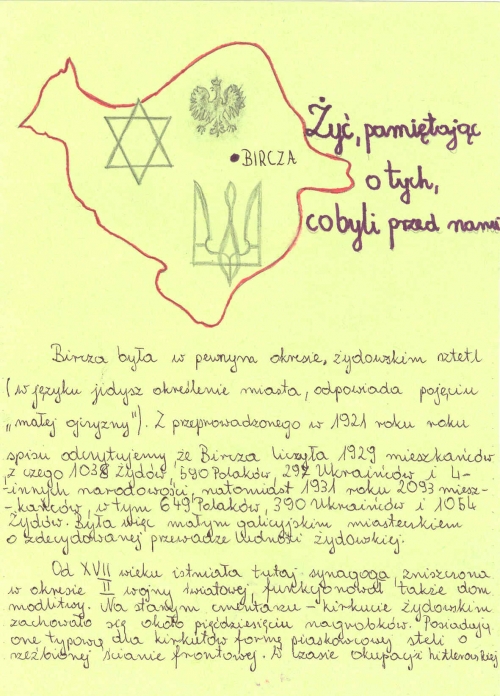 BIRCZA
Żyć, pamiętając
o tych,
co byli przed nami
Bircza była w pewnym okresie, żydowskim sztetl
(w języku jidysz określenie miasta, odpowiada pojęciu
„małej ojczyzny"). Z przeprowadzonego w 1921 roku roku
spisu odczytujemy że Bircza liczyła 1929 mieszkańców
, z czego 1038 Żydów, 590 Polaków, 297 Ukraińców i 4-
-innych narodowości, natomiast 1931 roku 2093 miesz-
-kańców, w tym 649 Polaków, 390 Ukraińców i 1054
Żydów. Była więc małym galicyjskim miasteczkiem
o zdecydowanej przewadze ludności żydowskiej.
Od XVII wieku istniała tutaj synagoga, zniszczona
w okresie II wojny światowej, funkcjonował także dom
modlitwy. Na starym cmentarzu - kirkucie żydowskim
zachowało się około pięćdziesięciu nagrobków. Posiadają
one typową dla kirkutów formę piaskowcowej steli o
rzeźbionej ścianie frontowej. W czasie okupacji hitlerowskiej